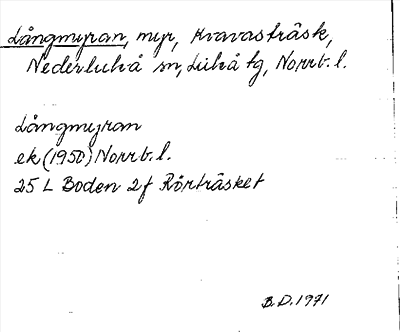 Långmyran, myr, Kvavasträsk,
Nederluleå sn, Luleå tg, Norrb. l.
Långmyran
ek (1950) Norrb. l.
25 L Boden 2f Rörträsket
B.D. 1971